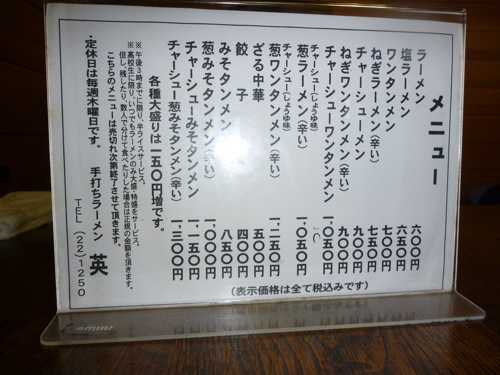 メニュー
ラーメン 六〇〇円
塩ラーメン 六五〇円
ワンタンメン 七〇〇円
ねぎラーメン(辛い) 七五〇円
チャーシューメン 九〇〇円
ねぎワンタンメン(辛い) 九〇〇円
チャーシューワンタンメン 一、〇五〇円
チャーシュー(しょうゆ味)
葱ラーメン(辛い) 一、〇五〇円
チャーシュー(しょうゆ味)
葱ワンタンメン(辛い) 一、二五〇円
ざる中華 五〇〇円
餃子 四〇〇円
みそタンメン 八五〇円
葱みそタンメン(辛い) 一、〇〇〇円
チャーシューみそタンメン 一、一五〇円
チャーシュー葱みそタンメン(辛い) 一、三〇〇円
各種大盛りは一五〇円増です。
(表示価格は全て税込みです)
※午後3時までに限り、半ライスサービス。
※高校生に限り、いつでもラーメンのみ大盛・特盛をサービス。
但し、残したり、数人で分けて食べたりした場合は正規の金額を頂きます。
こちらのメニューは売切れ次第終了させて頂きます。
・定休日は毎週木曜日です。
手打ちラーメン 英
TEL (22)1250